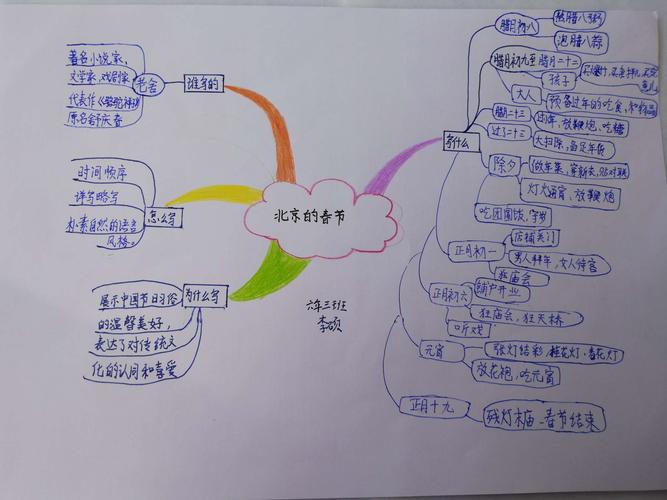 北京的春节
六年三班
李硕
谁写的
老舍
著名小说家,
文学家,戏剧家
代表作《骆驼祥子》
原名舒庆春
怎么写
时间顺序
详写略写
朴素自然的语言
风格。
为什么写
展示中国节日习俗
的温馨美好,
表达了对传统文
化的认同和喜爱
写什么
腊月初八
熬腊八粥
泡腊八蒜
腊月初九至腊月二十二
孩子
大人
预备过年的吃食,和物品
腊月二十三
过小年、放鞭炮、吃糖
过了二十三
大扫除,备足年货
除夕
做年菜、穿新衣、贴对联
灯火通宵、放鞭炮
吃团圆饭、守岁
正月初一
店铺关门
男人拜年,女人待客
逛庙会
正月初六
铺户开业
逛庙会,逛天桥
听戏
元宵
张灯结彩,挂花灯·看花灯
放花炮、吃元宵
正月十九
残灯末庙 - 春节结束